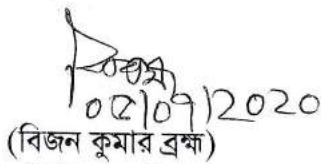 ০৫|০৭|2020
(বিজন কুমার ব্রহ্ম)